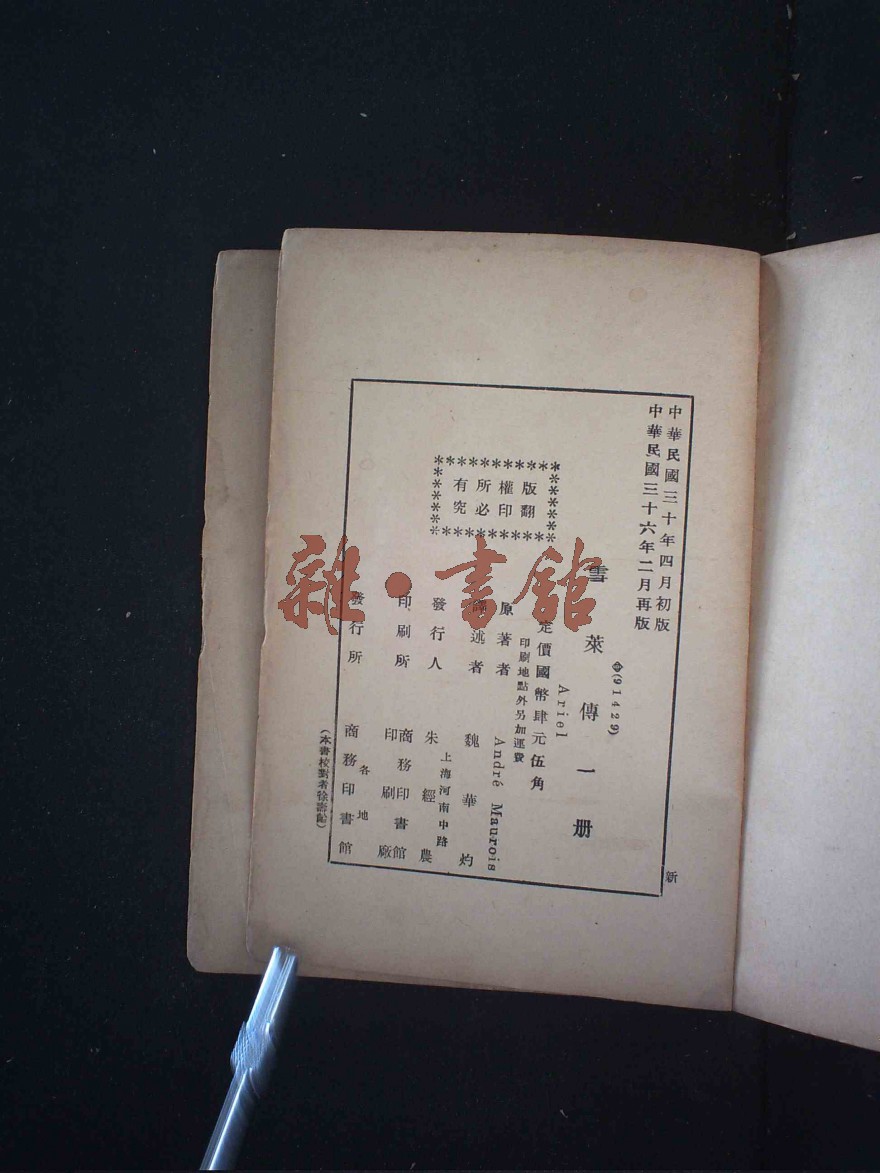 中華民國三十年四月初版
中華民國三十六年二月再版
(91429)
雪萊傳一册
Ariel
定價國幣肆元伍角
印刷地點外另加運費
原著者 André Maurois
述者 魏華灼
發行人 朱經農
上海河南中路
印刷所 商務印書館印刷廠
發行所 各地商務印書館
版權所有
翻印必究
(本書校對者徐壽齡)
新
雜·書館